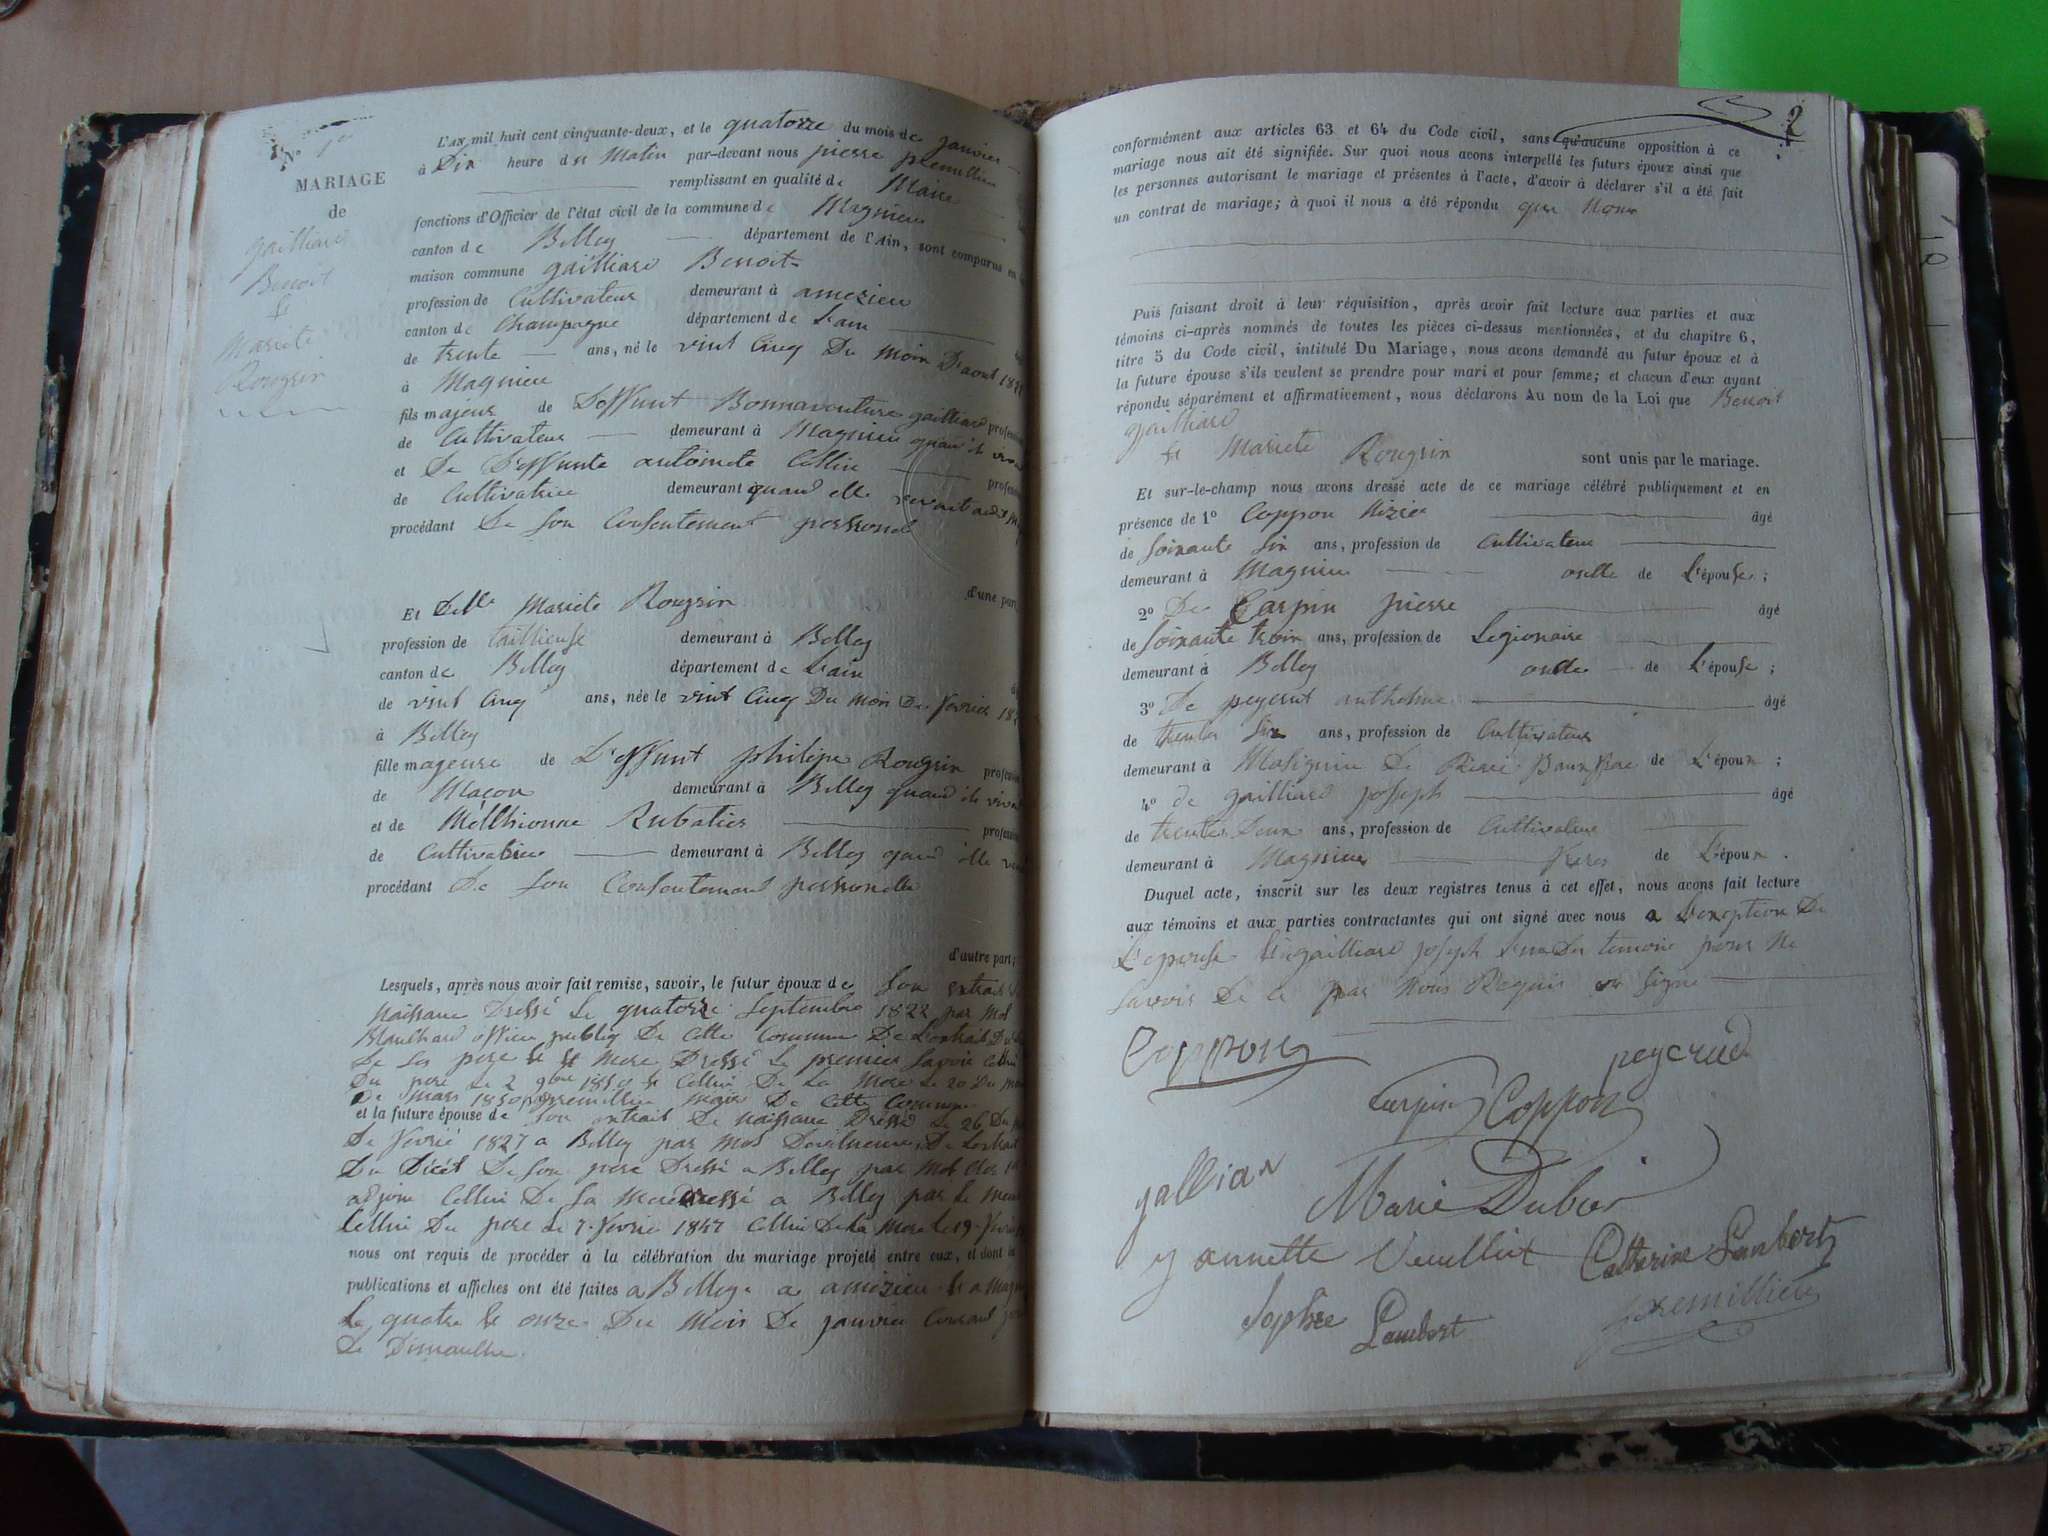 N° 1er
MARIAGE
de
gailliard
Benoit
&
Mariete
Rougrin
L'AN mil huit cent cinquante-deux, et le quatorze du mois de janvier
à Dix heure du Matin par-devant nous pierre premillieu
remplissant en qualité de Maire
fonctions d'Officier de l'état civil de la commune de Magnieu
canton de Belley département de l'Ain, sont comparus en
maison commune gailliard Benoit
profession de Cultivateur demeurant à amezieu
canton de Champagne département de L'ain
de trente ans, né le vint Cinq Du mois D'aout
à Magnieu
fils majeur de Deffunt Bonnaventure gailliard
de Cultivateur demeurant à Magnieu quan il
et De Deffunte antoinete Collin
de Cultivatrice demeurant quand elle
procédant De Son Consentement personel
d'une part
Et Delle Mariete Rougrin
profession de taillieuse demeurant à Belley
canton de Belley département de L'ain
de vint Cinq ans, née le vint Cinq Du mois De fevrier
à Belley
fille mageure de Deffunt philipe Rougrin
de Maçon demeurant à Belley quand il
et de Mélthionne Rubatier
de Cultivatrice demeurant à Belley quand elle
procédant De Son Consentement personelle
d'autre part;
Lesquels, après nous avoir fait remise, savoir, le futur époux de Son extrait
naissance Dressé Le quatorze Septembre 1822 par Mot
Blanchard officier publiq De cette Commune De Lextrait
De Ses pere & Mere Dressé Le premier Savoir Cellui
Du pere Le 2 9bre 1850 & Cellui De La Mere Le 20 Du
De mars 1850 premillieu Maire De Cette Commune
et la future épouse de Son extrait De naissance Dressé Le 26 Du
De fevrié 1827 a Belley par Mot De Lextrait
Du Décét De Son pere Dressé a Belley par Mot
adjoin Cellui De Sa Mere Dressé a Belley par Le
Cellui Du pere Le 7 fevrie 1847 Cellui De La Mere Le 19
nous ont requis de procéder à la célébration du mariage projeté entre eux, et dont
publications et affiches ont été faites a Belley a amezieu & a
Le quatre & onze Du Mois De janvier Courant
De Dimanche.
2
conformément aux articles 63 et 64 du Code civil, sans qu'aucune opposition à ce
mariage nous ait été signifiée. Sur quoi nous avons interpellé les futurs époux ainsi que
les personnes autorisant le mariage et présentes à l'acte, d'avoir à déclarer s'il a été fait
un contrat de mariage; à quoi il nous a été répondu que Non
Puis faisant droit à leur réquisition, après avoir fait lecture aux parties et aux
témoins ci-après nommés de toutes les pièces ci-dessus mentionnées, et du chapitre 6,
titre 5 du Code civil, intitulé Du Mariage, nous avons demandé au futur époux et à
la future épouse s'ils veulent se prendre pour mari et pour femme; et chacun d'eux ayant
répondu séparément et affirmativement, nous déclarons Au nom de la Loi que Benoit
gailliard
& Mariete Rougrin sont unis par le mariage.
Et sur-le-champ nous avons dressé acte de ce mariage célébré publiquement et en
présence de 1° Coppon Nizier âgé
de Soixante Six ans, profession de Cultivateur
demeurant à Magnieu de L'épouse;
2° De Carpin pierre âgé
de Soixante trois ans, profession de Legionaire
demeurant à Belley de L'épouse;
3° De peyerut anthelme âgé
de trente Six ans, profession de Cultivateur
demeurant à Masignieu De Rive de L'époux;
4° de gailliard joseph âgé
de trente Deux ans, profession de Cultivateur
demeurant à Magnieu freres de L'époux.
Duquel acte, inscrit sur les deux registres tenus à cet effet, nous avons fait lecture
aux témoins et aux parties contractantes qui ont signé avec nous a Lexeption De
L'epouse & gailliard joseph Lun Des temoins pour Ne
Savoir De Ce par Nous Requis signe
Coppon
peycrud
Carpin
Coppon
gallian
Marie Dubier
annette Veuilliet
Catherine Lambert
Sophie
Lambert
premillieu